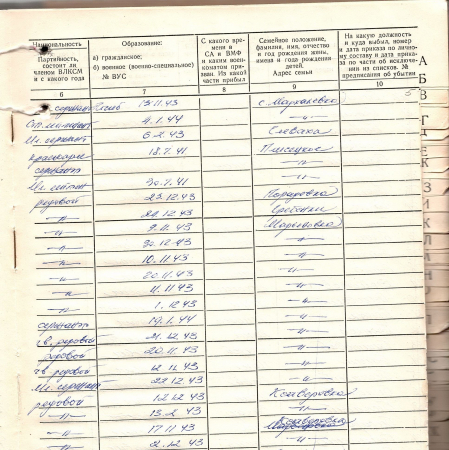 Национальность
Партийность, состоит ли членом ВЛКСМ и с какого года
Образование:
а) гражданское;
б) военное (военно-специальное)
№ ВУС
С какого времени в СА и ВМФ и каким военкоматом призван. Из какой части прибыл
Семейное положение, фамилия, имя, отчество и год рождения жены, имена и год рождения детей.
Адрес семьи
На какую должность и куда выбыл, номер и дата приказа по личному составу и дата приказа по части об исключении из списков. № предписания об убытии
6 7 8 9 10
сержант погиб 13.11.43 с. Мархалевка
4.1.44 —"—
Мл. сержант 6.2.43 Глеваха
18.7.41 Плисецкое
сержант
30.7.41
рядовой 23.12.43
—"— 22.12.43
—"— 9.11.43
—"— 30.12.43 —"—
—"— 10.11.43 —"—
—"— 20.11.43 —"—
—"— 4.11.43 —"—
—"— 1.12.43 —"—
сержант 19.1.44 —"—
гв. рядовой 21.12.43 —"—
рядовой 20.11.43 —"—
гв. рядовой 12.11.43 —"—
Мл. сержант 22.12.43 —"—
рядовой 12.12.43
—"— 13.2.43 —"—
—"— 17.11.43
—"— 2.12.43 —"—
А
Б
В
Г
Д
Е
К
З
И
К
Л
М
Н